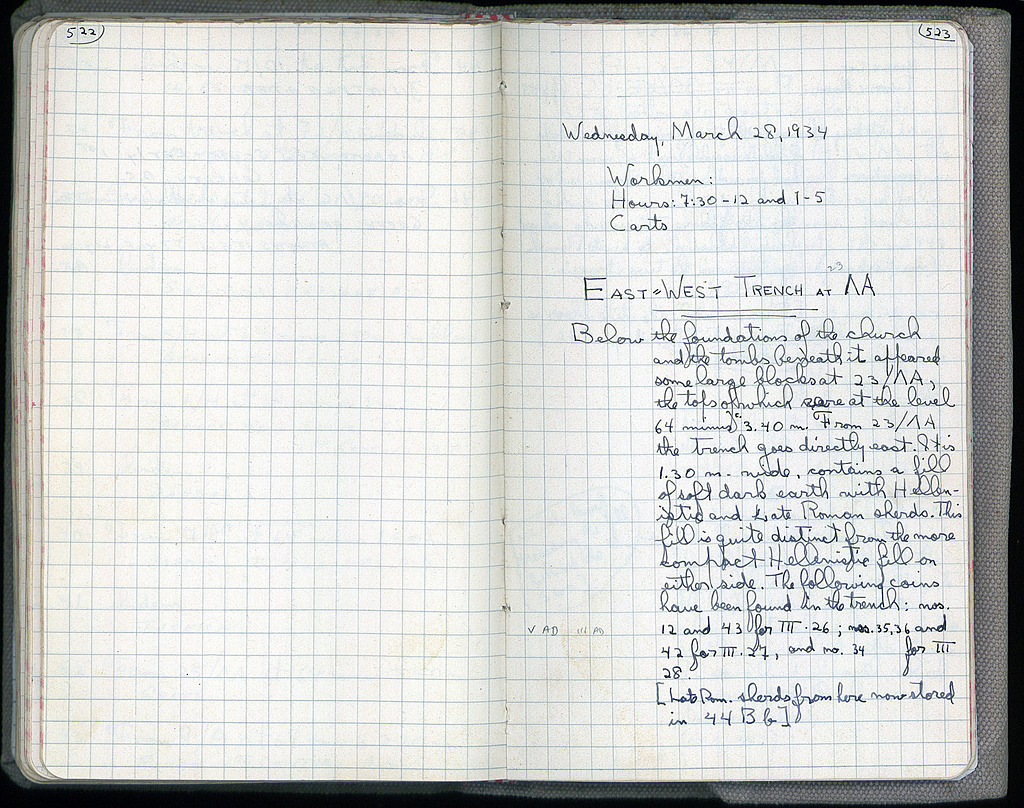 522
523
Wednesday, March 28, 1934
Workmen:
Hours: 7:30-12 and 1-5
Carts
23
EAST-WEST TRENCH AT ΛA
Below the foundations of the church
and the tombs beneath it appeared
some large blocks at 23/ΛA,
the tops of which are at the level
64 minus c. 3.40 m. From 23/ΛA
the trench goes directly east. It is
1.30 m. wide, contains a fill
of soft dark earth with Hellen-
istic and Late Roman sherds. This
fill is quite distinct from the more
compact Hellenistic fill on
either side. The following coins
have been found in the trench: nos.
V AD III AD 12 and 43 for III.26; nos. 35, 36 and
42 for III.27, and no. 34 for III
28.
[Late Rom. sherds from here now stored
in 44 B b]